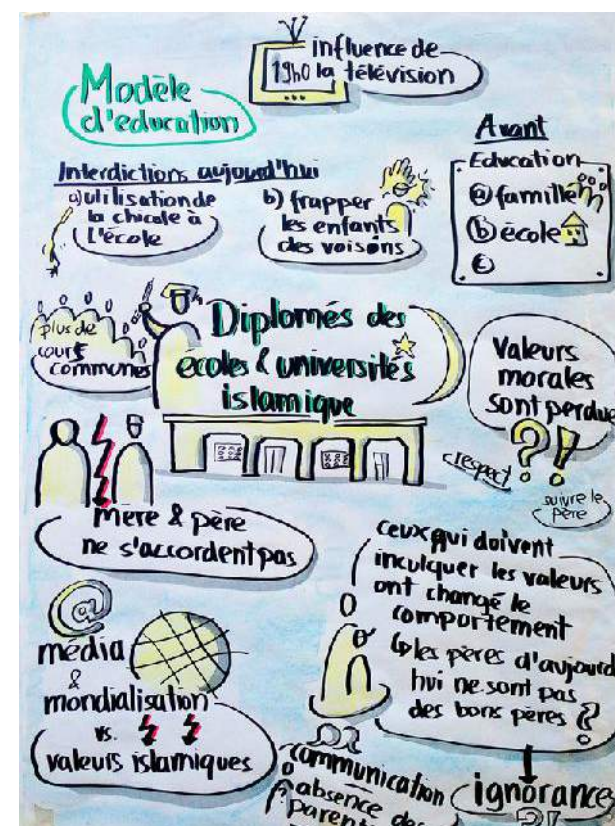 influence de
19h0 la télévision
Modèle
d'education
Avant
Education
a famille
b école
c
Interdictions aujourd'hui
a) utilisation de
la chicote à
l'école
b) frapper
les enfants
des voisons
plus de
cours
communes
Diplomés des
écoles & universités
islamique
Valeurs
morales
sont perdue
?!
respect
suivre le
Père
Mère & père
ne s'accordent pas
@
média
&
mondialisation
vs.
valeurs islamiques
ceux qui doivent
inculquer les valeurs
ont changé le
comportement
↳ les pères d'aujourd
hui ne sont pas
des bons pères
communication
absence des
parents
ignorance